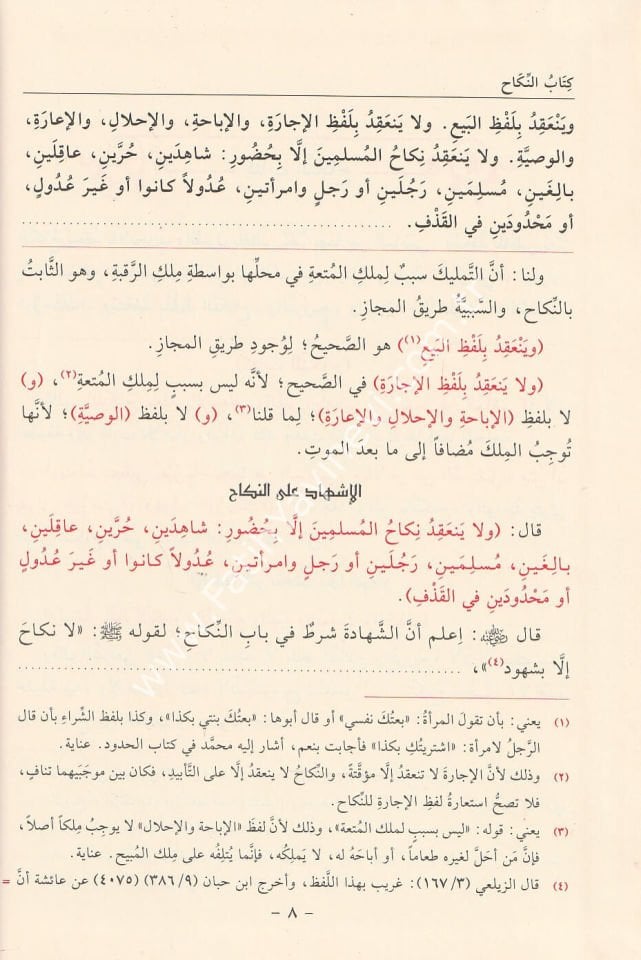 كِتَابُ النِّكَاح
ويَنْعَقِدُ بِلَفْظِ البَيعِ. ولا يَنعَقِدُ بِلَفْظِ الإجارَةِ، والإباحةِ، والإحلالِ، والإعارَةِ،
والوصيَّةِ. ولا يَنعَقِدُ نِكاحُ المُسلمِينَ إلَّا بِحُضُورِ: شاهِدَينِ، حُرَّينِ، عاقِلَينِ،
بالِغَينِ، مُسْلِمَينِ، رَجُلَينِ أو رَجلٍ وامرأتينِ، عُدُولاً كانوا أو غَيرَ عُدُولٍ،
أو مَحْدُودَينِ في القَذْفِ. ..........................................
ولنا: أنَّ التَّمليكَ سببٌ لِملكِ المُتعةِ في محلِّها بواسطةِ مِلكِ الرَّقبةِ، وهو الثَّابتُ
بالنِّكاحِ، والسَّببيَّةُ طريقُ المجازِ.
(ويَنْعَقِدُ بِلَفْظِ البَيعِ(١)) هو الصَّحيحُ؛ لِوُجودِ طريقِ المجازِ.
(ولا يَنعَقِدُ بِلَفْظِ الإجارَةِ) في الصَّحيح؛ لأنَّه ليس بسببٍ لِملكِ المُتعةِ(٢)، (و)
لا بلفظِ (الإباحةِ والإحلالِ والإعارَةِ)؛ لِما قلنا(٣)، (و) لا بلفظ (الوصيَّةِ)؛ لأنَّها
تُوجِبُ المِلكَ مُضافاً إلى ما بعدَ الموتِ.
الإشهاد على النكاح
قال: (ولا يَنعَقِدُ نكاحُ المُسلمِينَ إلَّا بِحُضُورِ: شاهِدَينِ، حُرَّينِ، عاقِلَينِ،
بالِغَينِ، مُسلمَينِ، رَجُلَينِ أو رَجلٍ وامرأتينِ، عُدُولاً كانوا أو غَيرَ عُدُولٍ
أو مَحْدُودَينِ في القَذْفِ).
قال رضي الله عنه: اِعلم أنَّ الشَّهادةَ شرطٌ في بابِ النِّكاحِ؛ لقوله ﷺ: «لا نكاحَ
إلَّا بشهود(٤)»، ..........................................
(١) يعني: بأن تقولَ المرأةُ: «بعتُكَ نفسي» أو قال أبوها: «بعتُكَ بنتي بكذا»، وكذا بلفظِ الشِّراءِ بأن قال
الرَّجلُ لامرأة: «اشتريتُكِ بكذا» فأجابت بنعم، أشار إليه محمَّد في كتاب الحدود. عناية.
(٢) وذلك لأنَّ الإجارةَ لا تنعقدُ إلَّا مؤقَّتةً، والنِّكاحُ لا ينعقدُ إلَّا على التَّأبيدِ، فكان بين موجَبَيهما تنافٍ،
فلا تصحُّ استعارةُ لفظِ الإجارةِ للنِّكاح.
(٣) يعني: قوله: «ليس بسببٍ لملك المتعة»، وذلك لأنَّ لفظَ «الإباحة والإحلال» لا يوجبُ مِلكاً أصلاً،
فإنَّ مَن أحَلَّ لغيره طعاماً، أو أباحَهُ له، لا يَملِكُه، فإنَّما يُتلِفُه على مِلك المُبيح. عناية.
(٤) قال الزيلعي (١٦٧/٣): غريب بهذا اللَّفظ، وأخرج ابن حبان (٣٨٦/٩) (٤٠٧٥) عن عائشة أنَّ =
- ٨ -